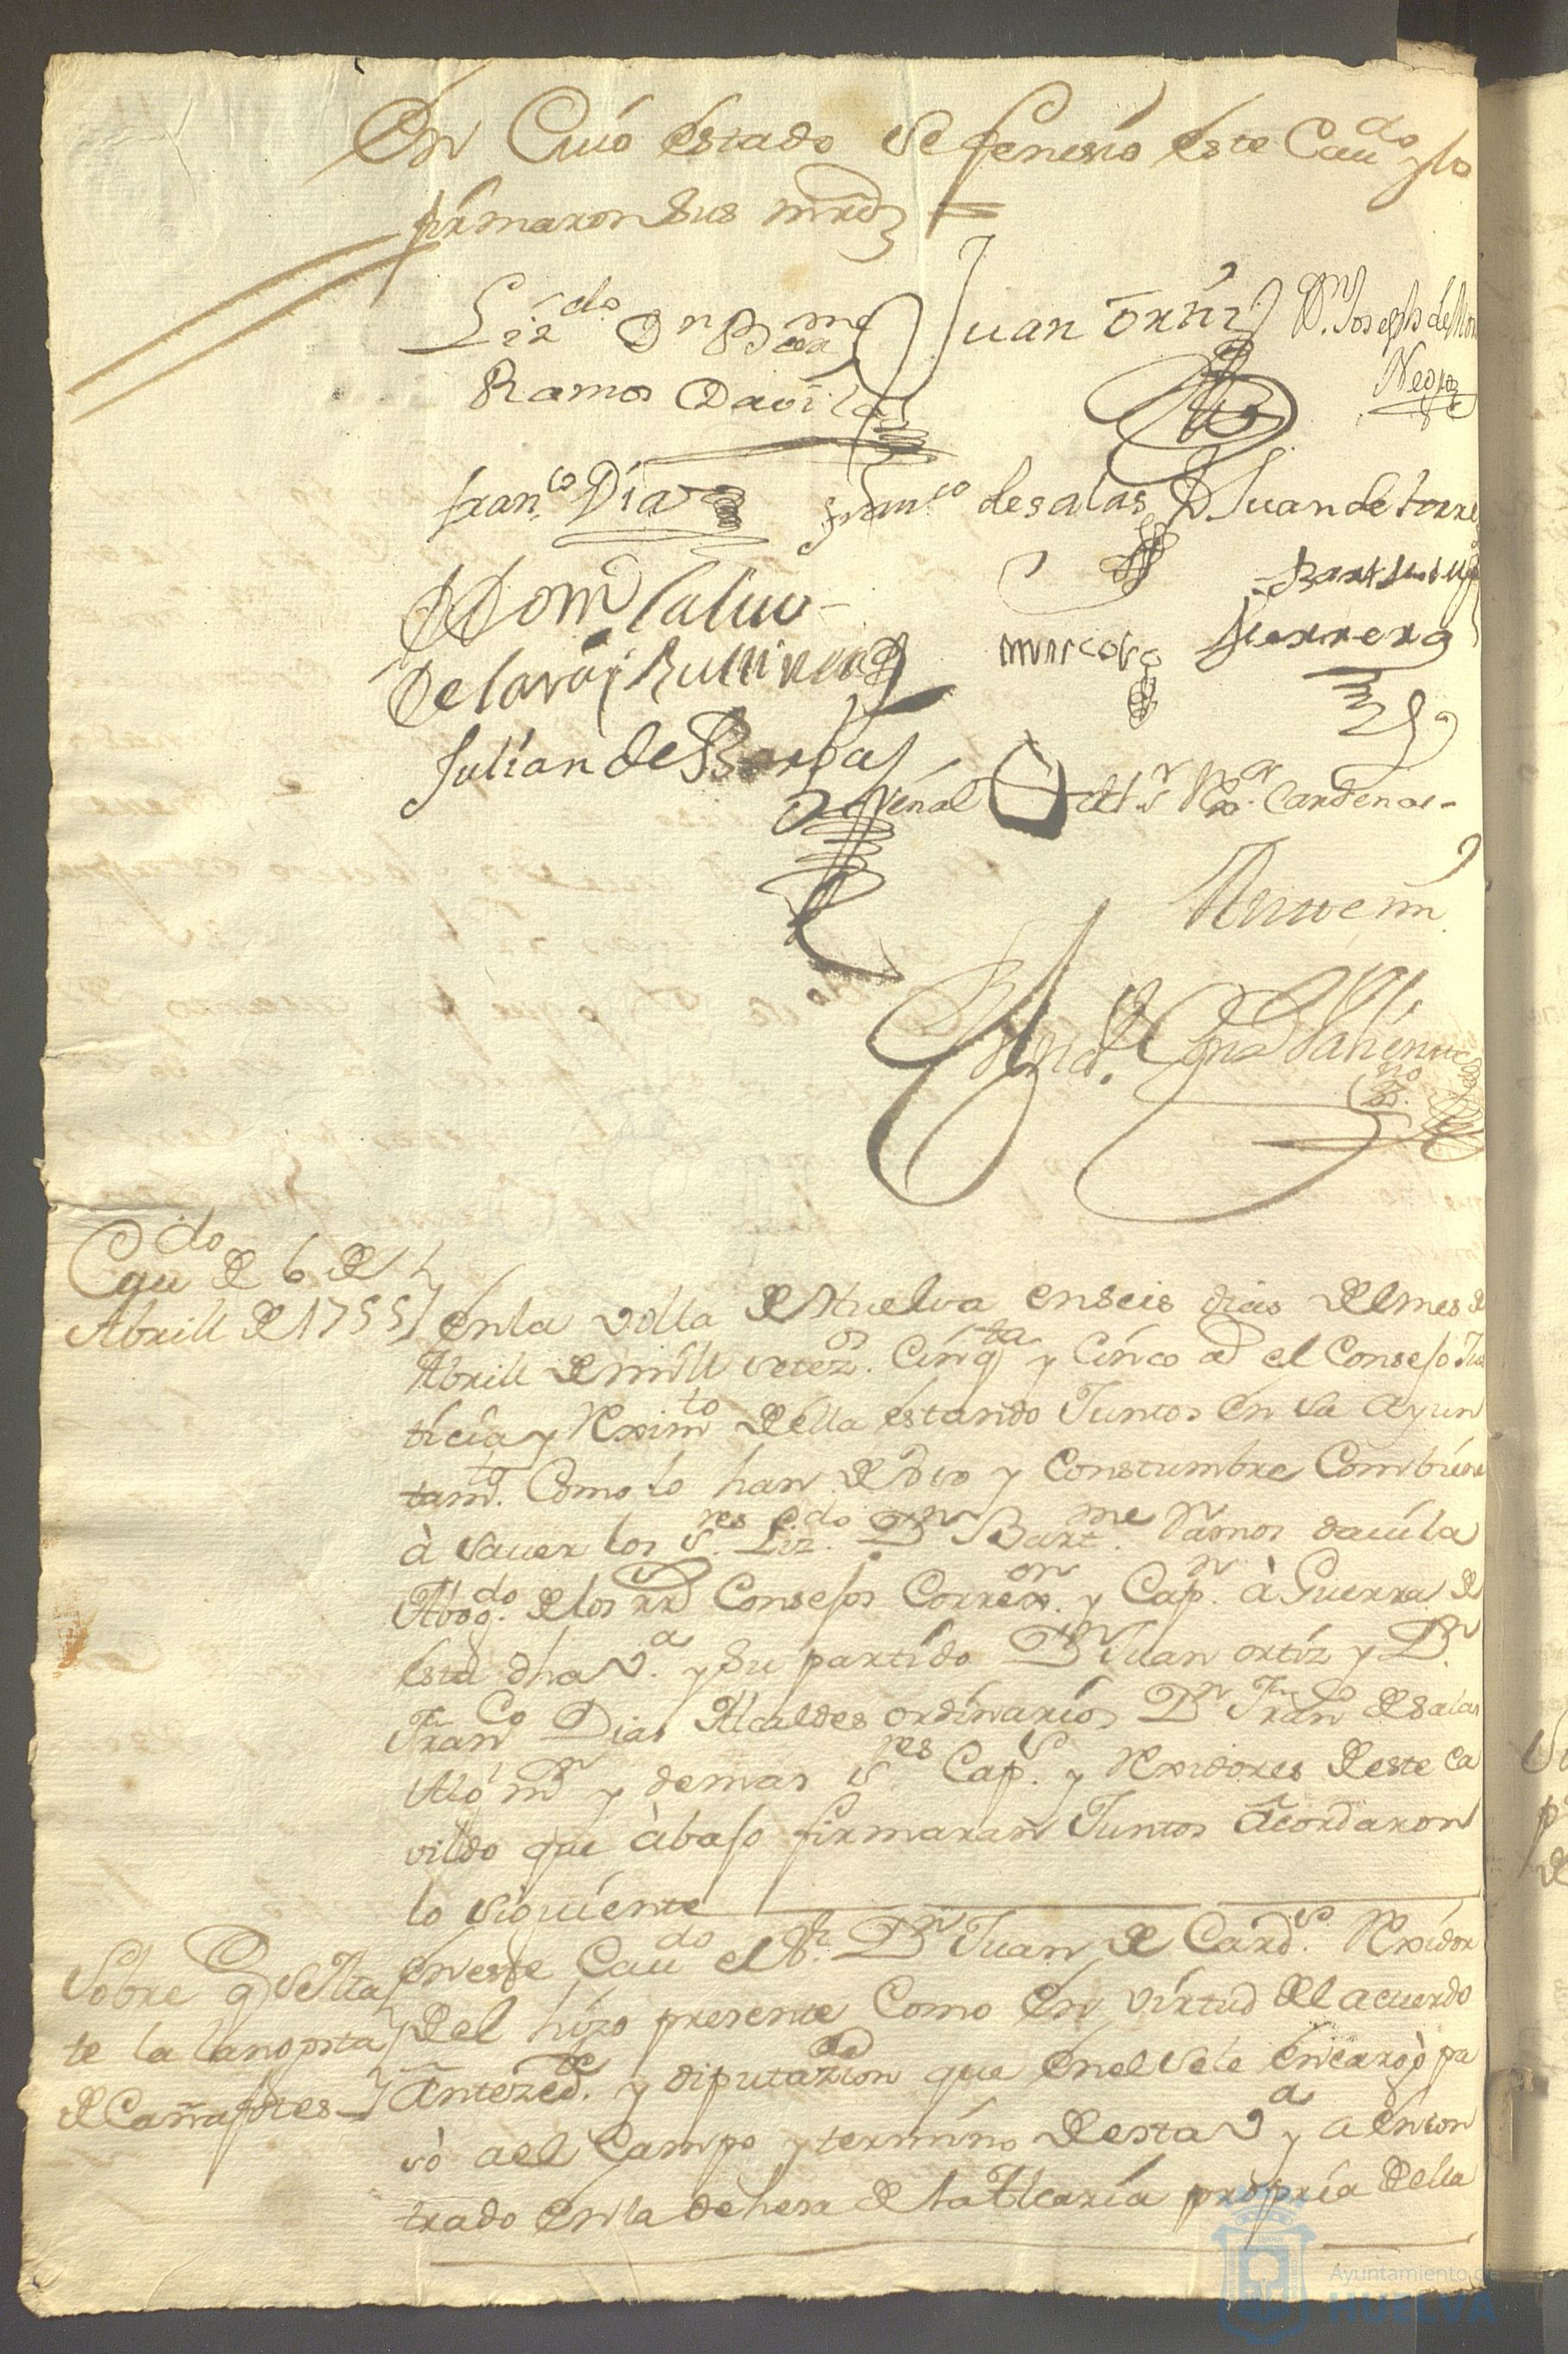 En Cuio estado se fenesio este Cau.do y lo
firmaron sus mrds =
Liz.do Dn Bme
Juan Ortiz
Dn. Joseph de
Ramos Davila
Negro
fran.co Diaz
fran.co de salas
D Juan de torre
Bartolome
Herrera
Julian de Borjas
señal del s.r R.or Cardenas
Ante mi
Cau.do de 6 de
Abrill de 1755
en la villa de Huelva en seis dias del mes de
Abrill de mill setez.os Cinq.ta y Cinco as el Consejo Jus
ticia y Rexim.to de ella estando Juntos en su Ayun
tam.to Como lo han de uso y Constumbre Combiene
à saver los s.res Liz.do Dn Bart.me Ramos davila
Abog.do de los rs Consejos Correx.or y Cap.n à Guerra de
esta dha v.a y su partido Dn Juan ortiz y Dn
Fran.co Dias Alcaldes ordinarios Dn Fran.co de salas
Alg.l m.r y demas s.res Cap.s y Rexidores de este ca
vildo que àbajo firmaran Juntos Acordaron
lo siguiente
Sobre q se
te la
de Cañafotes
en este Cau.do el s.r Dn Juan de Card.s Rexidor
del hizo presente Como en virtud del acuerdo
Antezed.te y diputazion que en el se le encargò pa
sò a el Campo y termino de esta v.a y a encon
trado en la dehesa de la Alcaria propria de ella
Ayuntamiento de
HUELVA